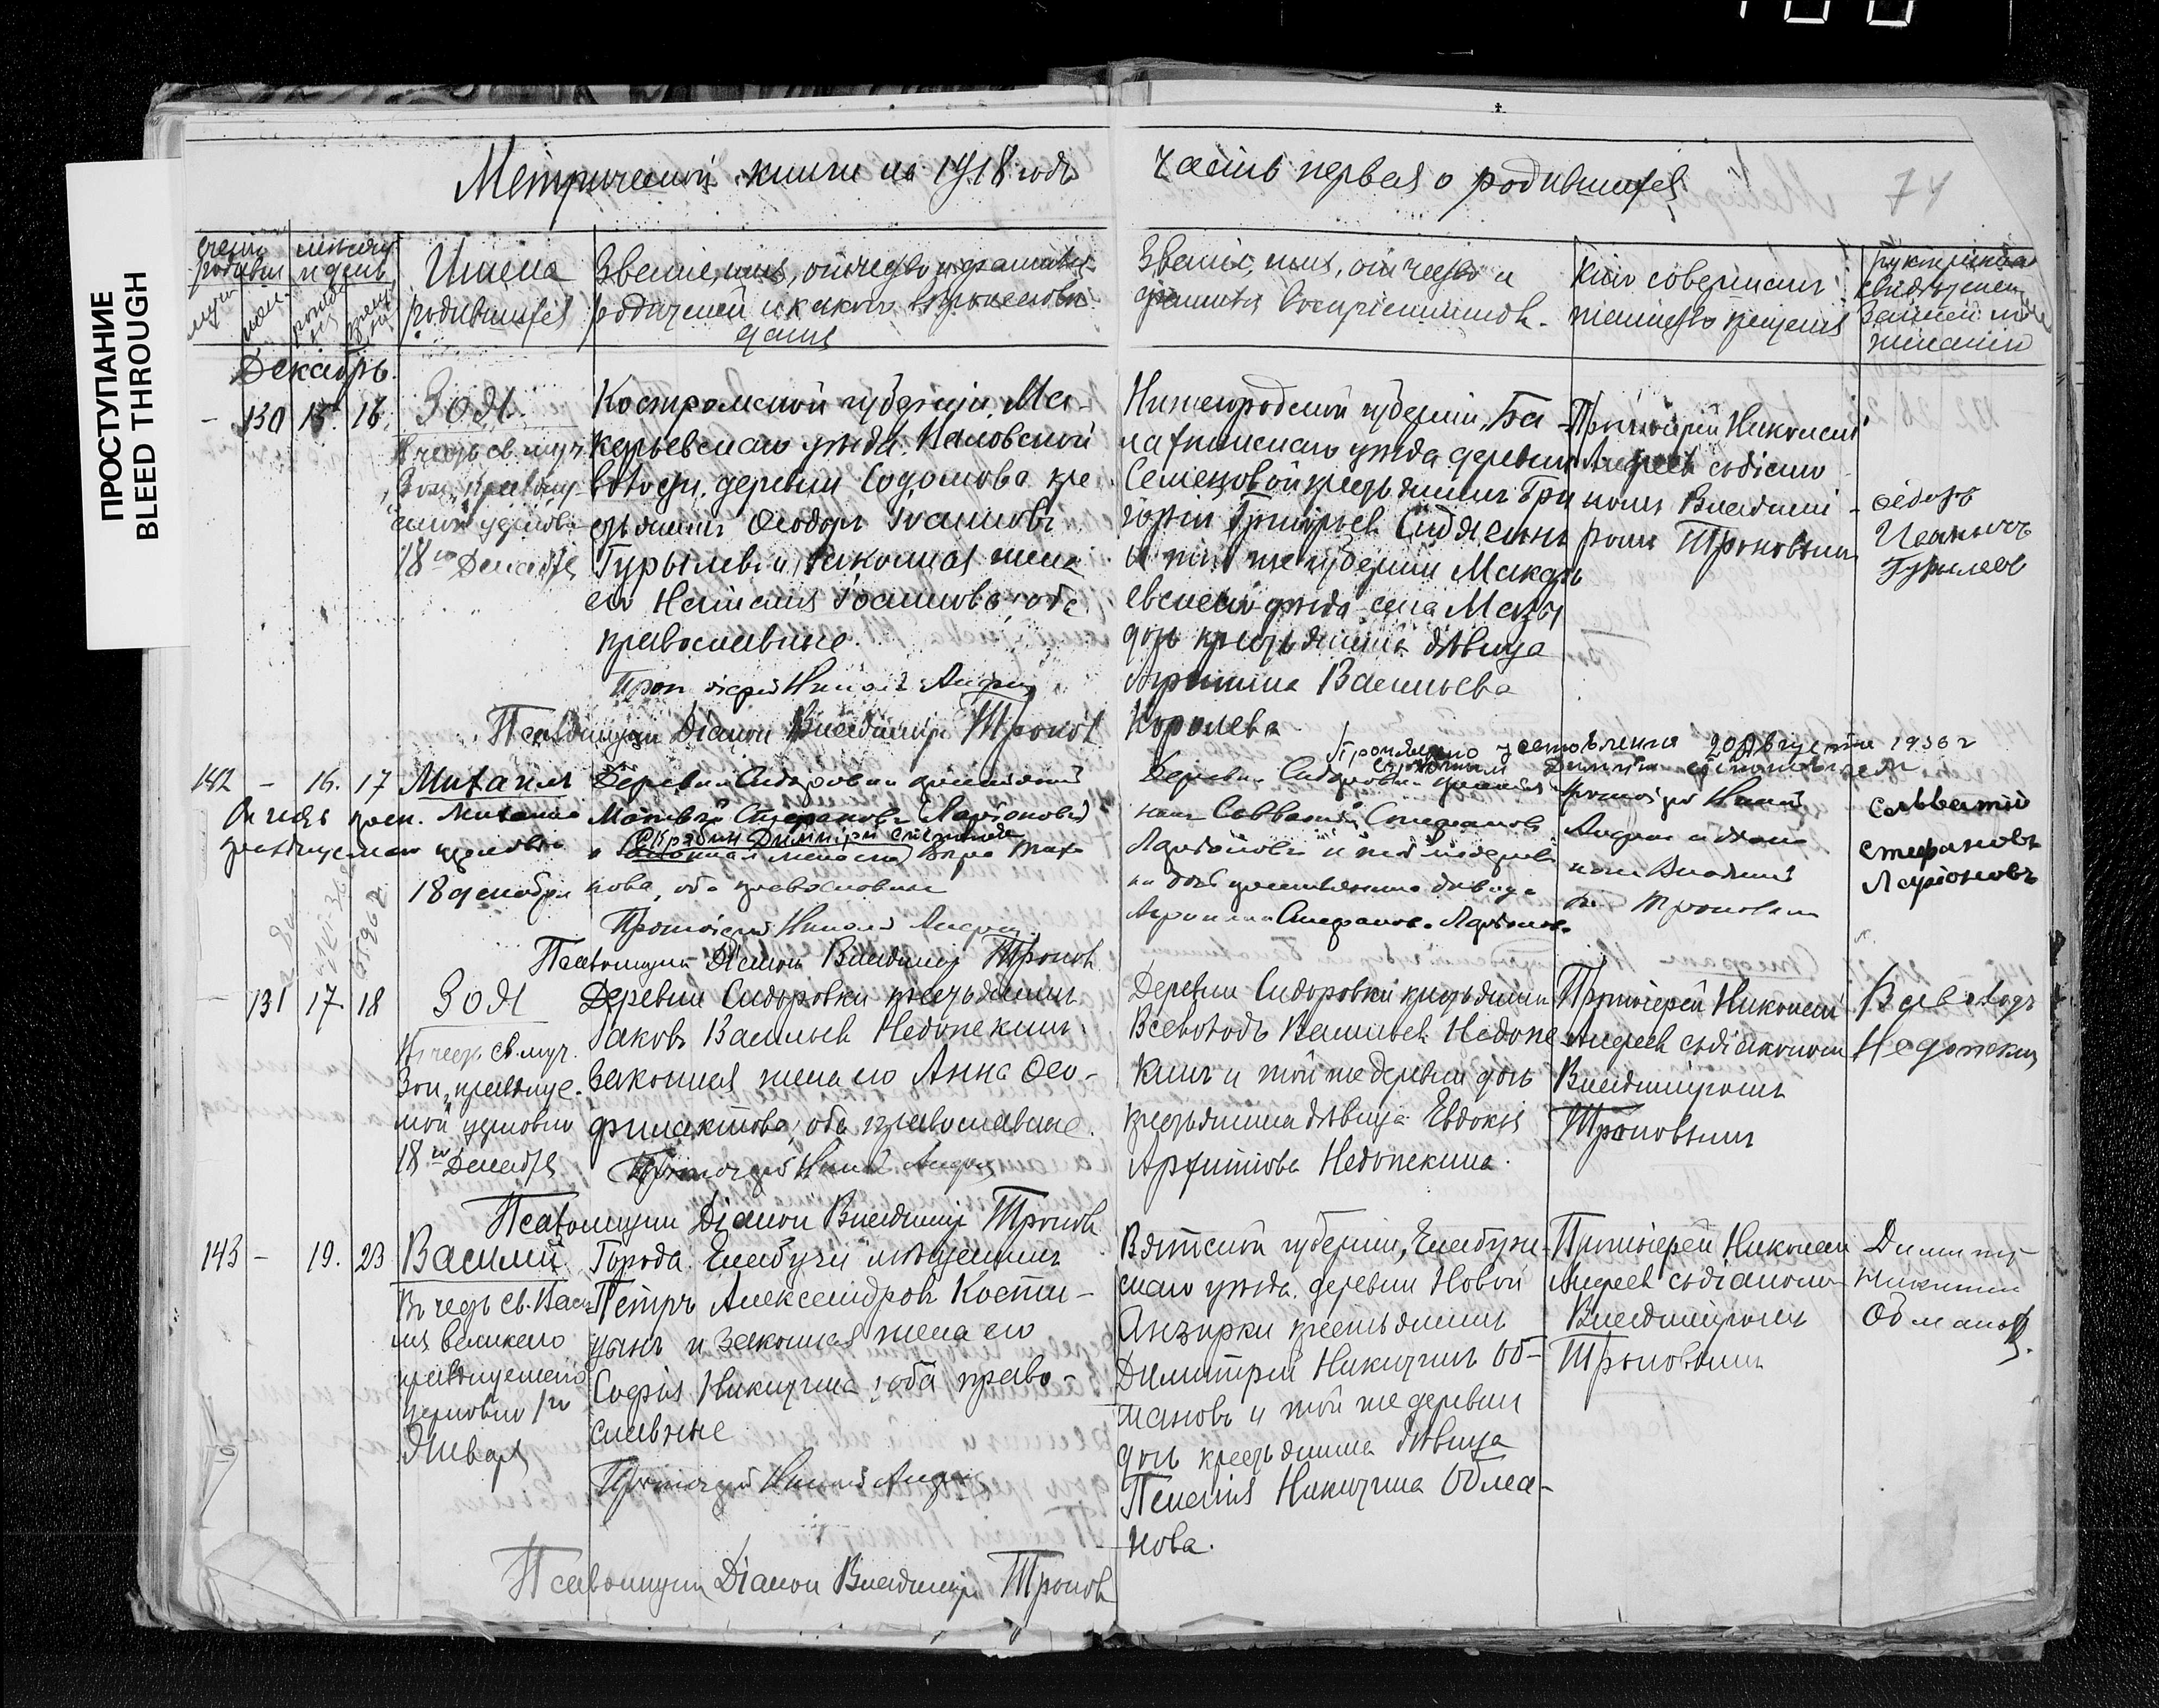 ПРОСТУПАНИЕ
BLEED THROUGH
Метрической книги на 1918 годъ
часть первая о родившихся
74
Имена
родившихся
Званіе, имя, отчество и фамилія
родителей и какого вѣроисповѣ
данія
Званіе, имя, отчество и
фамилія воспріемниковъ.
Кто совершалъ
таинство крещенія
Декабрь.
130 15 16.
Зоя.
18го Декабря
Костромской губерніи, Ма-
карьевскаго уѣзда,
волости, деревни Содомова кре
стьянинъ Ѳеодоръ Іоанновъ
Гурылевъ и законная жена
его Наталія Іоаннова, оба
православные.
Протоіерей Николай Андреев
Псаломщикъ Діаконъ Владиміръ Троновъ
Нижегородской губерніи, Ба
лахнинскаго уѣзда деревни
крестьянинъ Гри
горій Григорьевъ
и той же губерніи Макарь
евскаго уѣзда села
дочь крестьянина дѣвица
Васильева
Королева
Протоіерей Николай
Андреевъ съ діако
номъ Владимі
ромъ Троновымъ
Ѳедоръ
Ивановъ
Гурилев
20 Августа 1936 г
142 - 16. 17
Михаилъ
18 декабря
Деревни Сидоровки крестьянинъ
Матвѣй Стефановъ Ларіоновъ
Скрябин Димитрий Степанов
оба православные
Протоіерей Николай Андреев
Псаломщикъ Діаконъ Владиміръ Троновъ
Деревни Сидоровки крестья
нинъ Савватій Стефановъ
Ларіоновъ и той же дерев
ни дочь крестьянина дѣвица
Стефанова Ларіонова
Протоіерей Николай
Андреев и діако
номъ Владимі
Троновымъ
Савватій
Стефановъ
Ларіоновъ
131 17 18
Зоя
Въ честь св. муч.
Зои, празднуе-
мой церковью
18го Декабря
Деревни Сидоровки крестьянинъ
Іаковъ Васильевъ Недопекинъ
законная жена его Анна Ѳео-
филактова, оба православные.
Протоіерей Николай Андреев
Псаломщикъ Діаконъ Владиміръ Троновъ
Деревни Сидоровки крестьянинъ
Всеволодъ Васильевъ Недопе
кинъ и той же деревни дочь
крестьянина дѣвица Евдокія
Архипова Недопекина.
Протоіерей Николай
Андреевъ съ діакономъ
Владиміромъ
Троновымъ
Всеволодъ
Недопекин
143 - 19. 23
Василій
Въ честь св. Васи
лія великаго
празднуемаго
Церковью 1го
Января
Города Елабуги мѣщанинъ
Петръ Александровъ Кости-
цынъ и законная жена его
Софія Никитина, оба право-
славные
Протоіерей Николай Андреев
Псаломщикъ Діаконъ Владиміръ Троновъ
Вятской губерніи, Елабуж-
скаго уѣзда деревни Новой
Анзирки крестьянинъ
Димитрій Никитинъ Об-
мановъ и той же деревни
дочь крестьянина дѣвица
Пелагія Никитина Обма-
нова.
Протоіерей Николай
Андреевъ съ діакономъ
Владиміромъ
Троновымъ
Димитрій
Никитин
Обманов